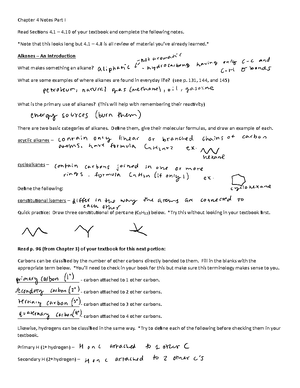 Chapter 4 Notes Part I
Read Sections 4.1 – 4.18 of your textbook and complete the following notes.
*Note that this looks long but 4.1 – 4.8 is all review of material you've already learned.*
Alkanes – An Introduction
not aromatic
What makes something an alkane? aliphatic - hydrocarbons having only C-C and
C-H σ bonds
What are some examples of where alkanes are found in everyday life? (see p. 131, 144, and 145)
petroleum, natural gas (methane), oil, gasoline
What is the primary use of alkanes? (This will help with remembering their reactivity)
energy sources (burn them)
There are two basic categories of alkanes. Define them, give their molecular formulas, and draw an example of each.
acyclic alkanes – contain only linear or branched chains of carbon
atoms, have formula CnH2n+2 ex:
hexane
cycloalkanes – contain carbons joined in one or more
rings, formula CnH2n (if only 1) ex:
cyclohexane
Define the following:
constitutional isomers – differ in the way the atoms are connected to
each other
Quick practice: Draw three constitutional of pentane (C5H12) below. *Try this without looking in your textbook first.
Read p. 96 (from Chapter 1) of your textbook for this next portion:
Carbons can be classified by the number of other carbons directly bonded to them. Fill in the blanks with the
appropriate term below. *You'll need to check in your book for this but make sure this terminology makes sense to you.
primary carbon (1°) - carbon attached to 1 other carbon.
secondary carbon (2°) - carbon attached to 2 other carbons.
tertiary carbon (3°) - carbon attached to 3 other carbons.
quaternary carbon (4°) - carbon attached to 4 other carbons.
Likewise, hydrogens can be classified in the same way. *Try to define each of the following before checking them in your
textbook.
Primary H (1° hydrogen) – H on C attached to 1 other C
Secondary H (2° hydrogen) – H on C attached to 2 other C's